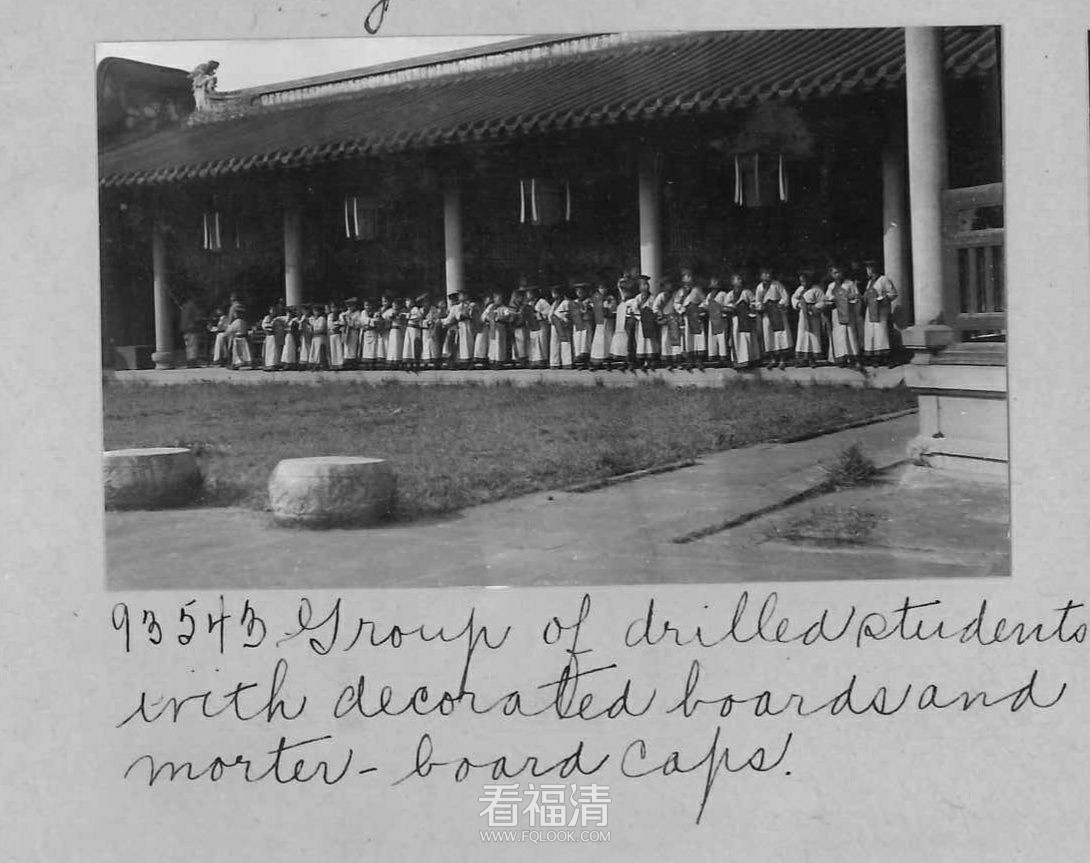 93543 Group of drilled students
with decorated boards and
morter-board caps.
看福清
WWW.FQLOOK.COM